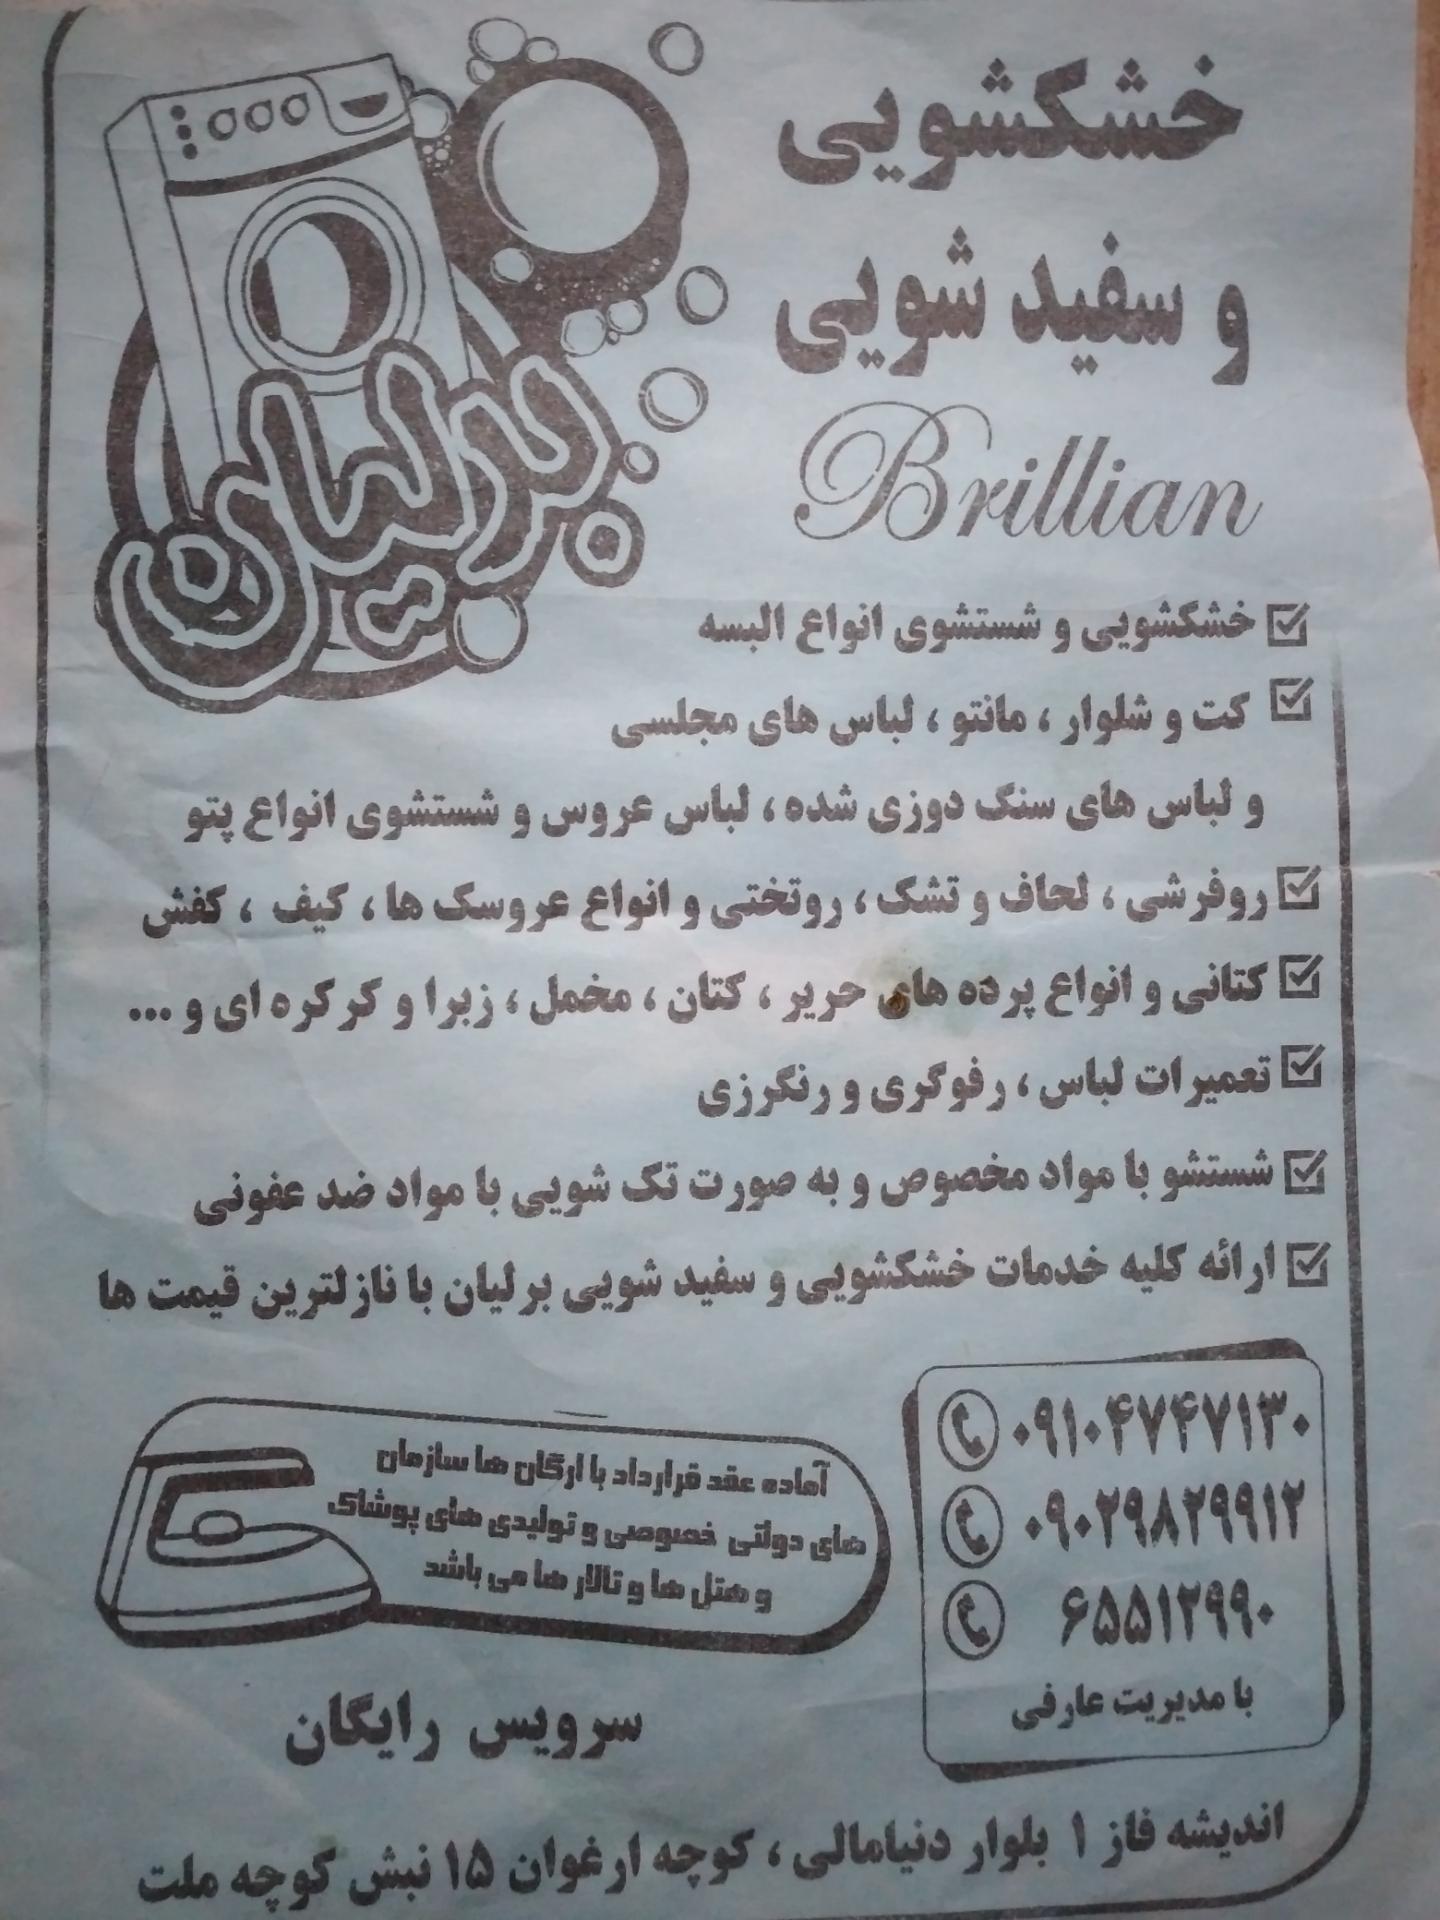 خشکشویی
و سفید شویی
Brillian
برلیان
خشکشویی و شستشوی انواع البسه
کت و شلوار ، مانتو ، لباس های مجلسی
و لباس های سنگ دوزی شده ، لباس عروس و شستشوی انواع پتو
روفرشی ، لحاف و تشک ، روتختی و انواع عروسک ها ، کیف ، کفش
کتانی و انواع پرده های حریر ، کتان ، مخمل ، زبرا و کرکره ای و ...
تعمیرات لباس ، رفوگری و رنگرزی
شستشو با مواد مخصوص و به صورت تک شویی با مواد ضد عفونی
ارائه کلیه خدمات خشکشویی و سفید شویی برلیان با نازلترین قیمت ها
۰۹۱۰۴۷۴۷۱۳۰
۰۹۰۲۹۸۲۹۹۱۲
۶۵۵۱۲۹۹۰
با مدیریت عارفی
آماده عقد قرارداد با ارگان ها سازمان
های دولتی خصوصی و تولیدی های پوشاک
و هتل ها و تالار ها می باشد
سرویس رایگان
اندیشه فاز ۱ بلوار دنیامالی ، کوچه ارغوان ۱۵ نبش کوچه ملت